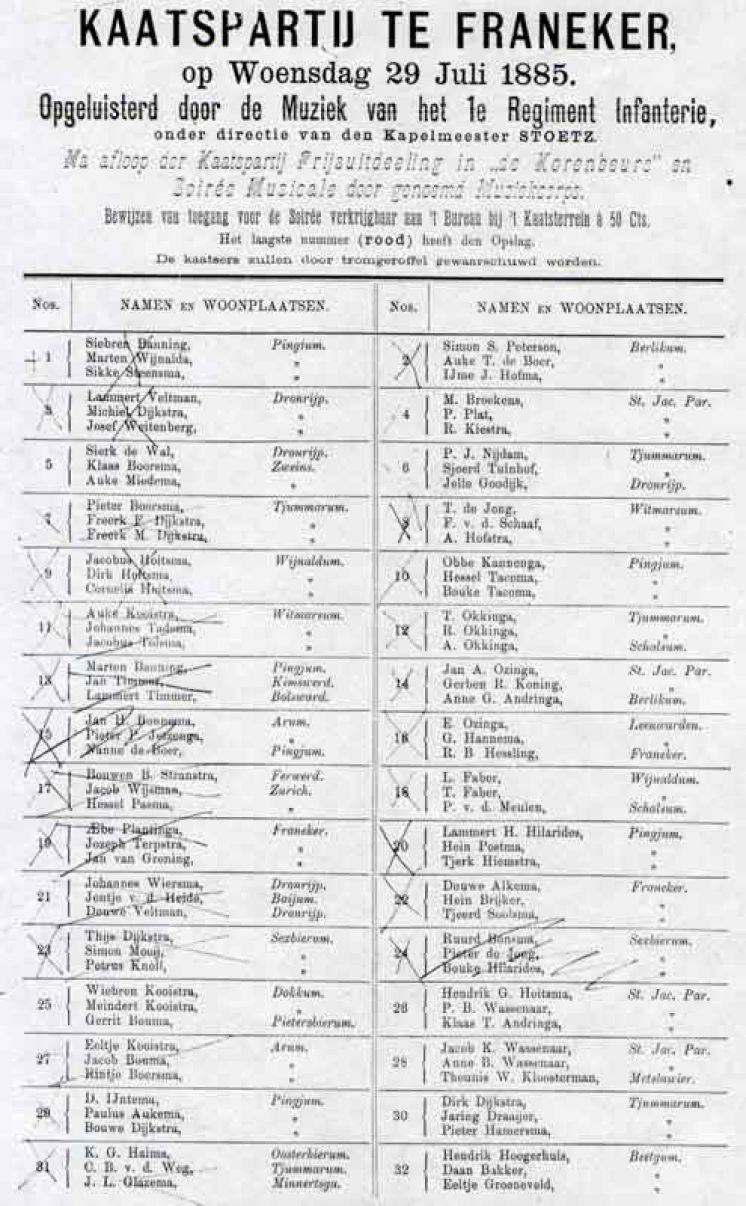 KAATSPARTIJ TE FRANEKER,
op Woensdag 29 Juli 1885.
Opgeluisterd door de Muziek van het 1e Regiment Infanterie,
onder directie van den Kapelmeester STOETZ.
Na afloop der Kaatspartij Prijsuitdeeling in „de Korenbeurs" en
Soirée Musicale door genoemd Muziekcorps.
Bewijzen van toegang voor de Soirée verkrijgbaar aan 't Bureau bij 't Kaatsterrein à 50 Cts.
Het laagste nummer (rood) heeft den Opslag.
De kaatsers zullen door tromgeroffel gewaarschuwd worden.
Nos. NAMEN EN WOONPLAATSEN.
1
Siebren Banning, Pingjum.
Marten Wijnalda, „
Sikke Steensma, „
3
Lammert Veltman, Dronrijp.
Michiel Dijkstra, „
Josef Weitenberg, „
5
Sierk de Wal, Dronrijp.
Klaas Boorsma, Zweins.
Auke Miedema, „
7
Pieter Boorsma, Tjummarum.
Freerk F. Dijkstra, „
Freerk M. Dijkstra, „
9
Jacobus Hoitsma, Wijnaldum.
Dirk Hoitsma, „
Cornelis Hoitsma, „
11
Auke Kooistra, Witmarsum.
Johannes Tadema, „
Jacobus Tolsma, „
13
Marten Banning, Pingjum.
Jan Timmer, Kimswerd.
Lammert Timmer, Bolsward.
15
Jan H. Bonnema, Arum.
Pieter P. Jetzenga, „
Nanne de Boer, Pingjum.
17
Bouwen B. Stranstra, Ferwerd.
Jacob Wijsman, Zurich.
Hessel Pasma, „
19
Æbe Plantinga, Franeker.
Jozeph Terpstra, „
Jan van Groning, „
21
Johannes Wiersma, Dronrijp.
Jentje v. d. Heide, Baijum.
Douwe Veltman, Dronrijp.
23
Thijs Dijkstra, Sexbierum.
Simon Mouij, „
Petrus Knoll, „
25
Wiebren Kooistra, Dokkum.
Meindert Kooistra, „
Gerrit Bouma, Pietersbierum.
27
Eeltje Kooistra, Arum.
Jacob Bouma, „
Rintje Boersma, „
29
D. IJntema, Pingjum.
Paulus Aukema, „
Bouwe Dijkstra, „
31
K. G. Haima, Oosterbierum.
C. B. v. d. Weg, Tjummarum.
J. L. Glazema, Minnertsga.
Nos. NAMEN EN WOONPLAATSEN.
2
Simon S. Peterson, Berlikum.
Auke T. de Boer, „
IJme J. Hofma, „
4
M. Broekens, St. Jac. Par.
P. Plat, „
R. Kiestra, „
6
P. J. Nijdam, Tjummarum.
Sjoerd Tuinhof, „
Jelle Goodijk, Dronrijp.
8
T. de Jong, Witmarsum.
F. v. d. Schaaf, „
A. Hofstra, „
10
Obbe Kannenga, Pingjum.
Hessel Tacoma, „
Bouke Tacoma, „
12
T. Okkinga, Tjummarum.
R. Okkinga, „
A. Okkinga, Schalsum.
14
Jan A. Ozinga, St. Jac. Par.
Gerben R. Koning, „
Anne G. Andringa, Berlikum.
16
E. Ozinga, Leeuwarden.
G. Hannema, „
R. B Hessling, Franeker.
18
L. Faber, Wijnaldum.
T. Faber, „
P. v. d. Meulen, Schalsum.
20
Lammert H. Hilarides, Pingjum.
Hein Postma, „
Tjerk Hiemstra, „
22
Douwe Alkema, Franeker.
Hein Brijker, „
Tjeerd Soolsma, „
24
Ruurd Bonsma, Sexbierum.
Pieter de Jong, „
Bouke Hilarides, „
26
Hendrik G. Hoitsma, St. Jac. Par.
P. B. Wassenaar, „
Klaas T. Andringa, „
28
Jacob K. Wassenaar, St. Jac. Par.
Anne B. Wassenaar, „
Theunis W. Kloosterman, Metslawier.
30
Dirk Dijkstra, Tjummarum.
Jaring Draaijer, „
Pieter Hamersma, „
32
Hendrik Hoogerhuis, Beetgum.
Daan Bakker, „
Eeltje Groeneveld, „